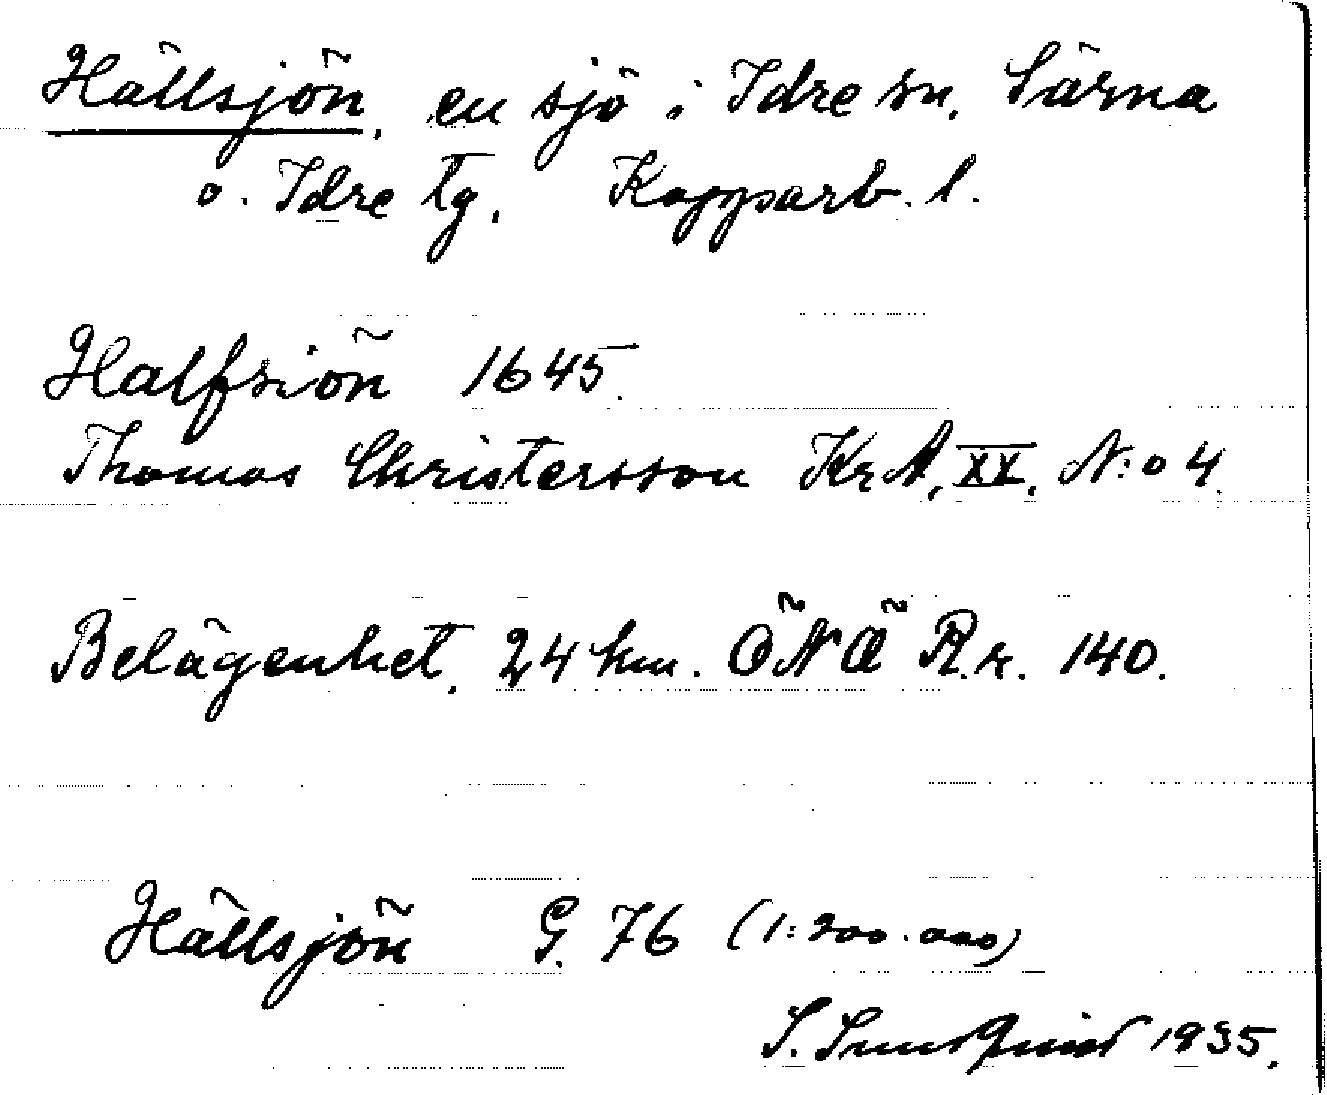 Hällsjön, en sjö i Idre sn. Särna
o. Idre tg. Kopparb. l.
Halfsiön 1645.
Thomas Christersson KrA, XX, N:o 4.
Belägenhet, 24 km. ÖNÖ R.r. 140.
Hällsjön G. 76 (1:200.000)
S. Sundqvist 1935.